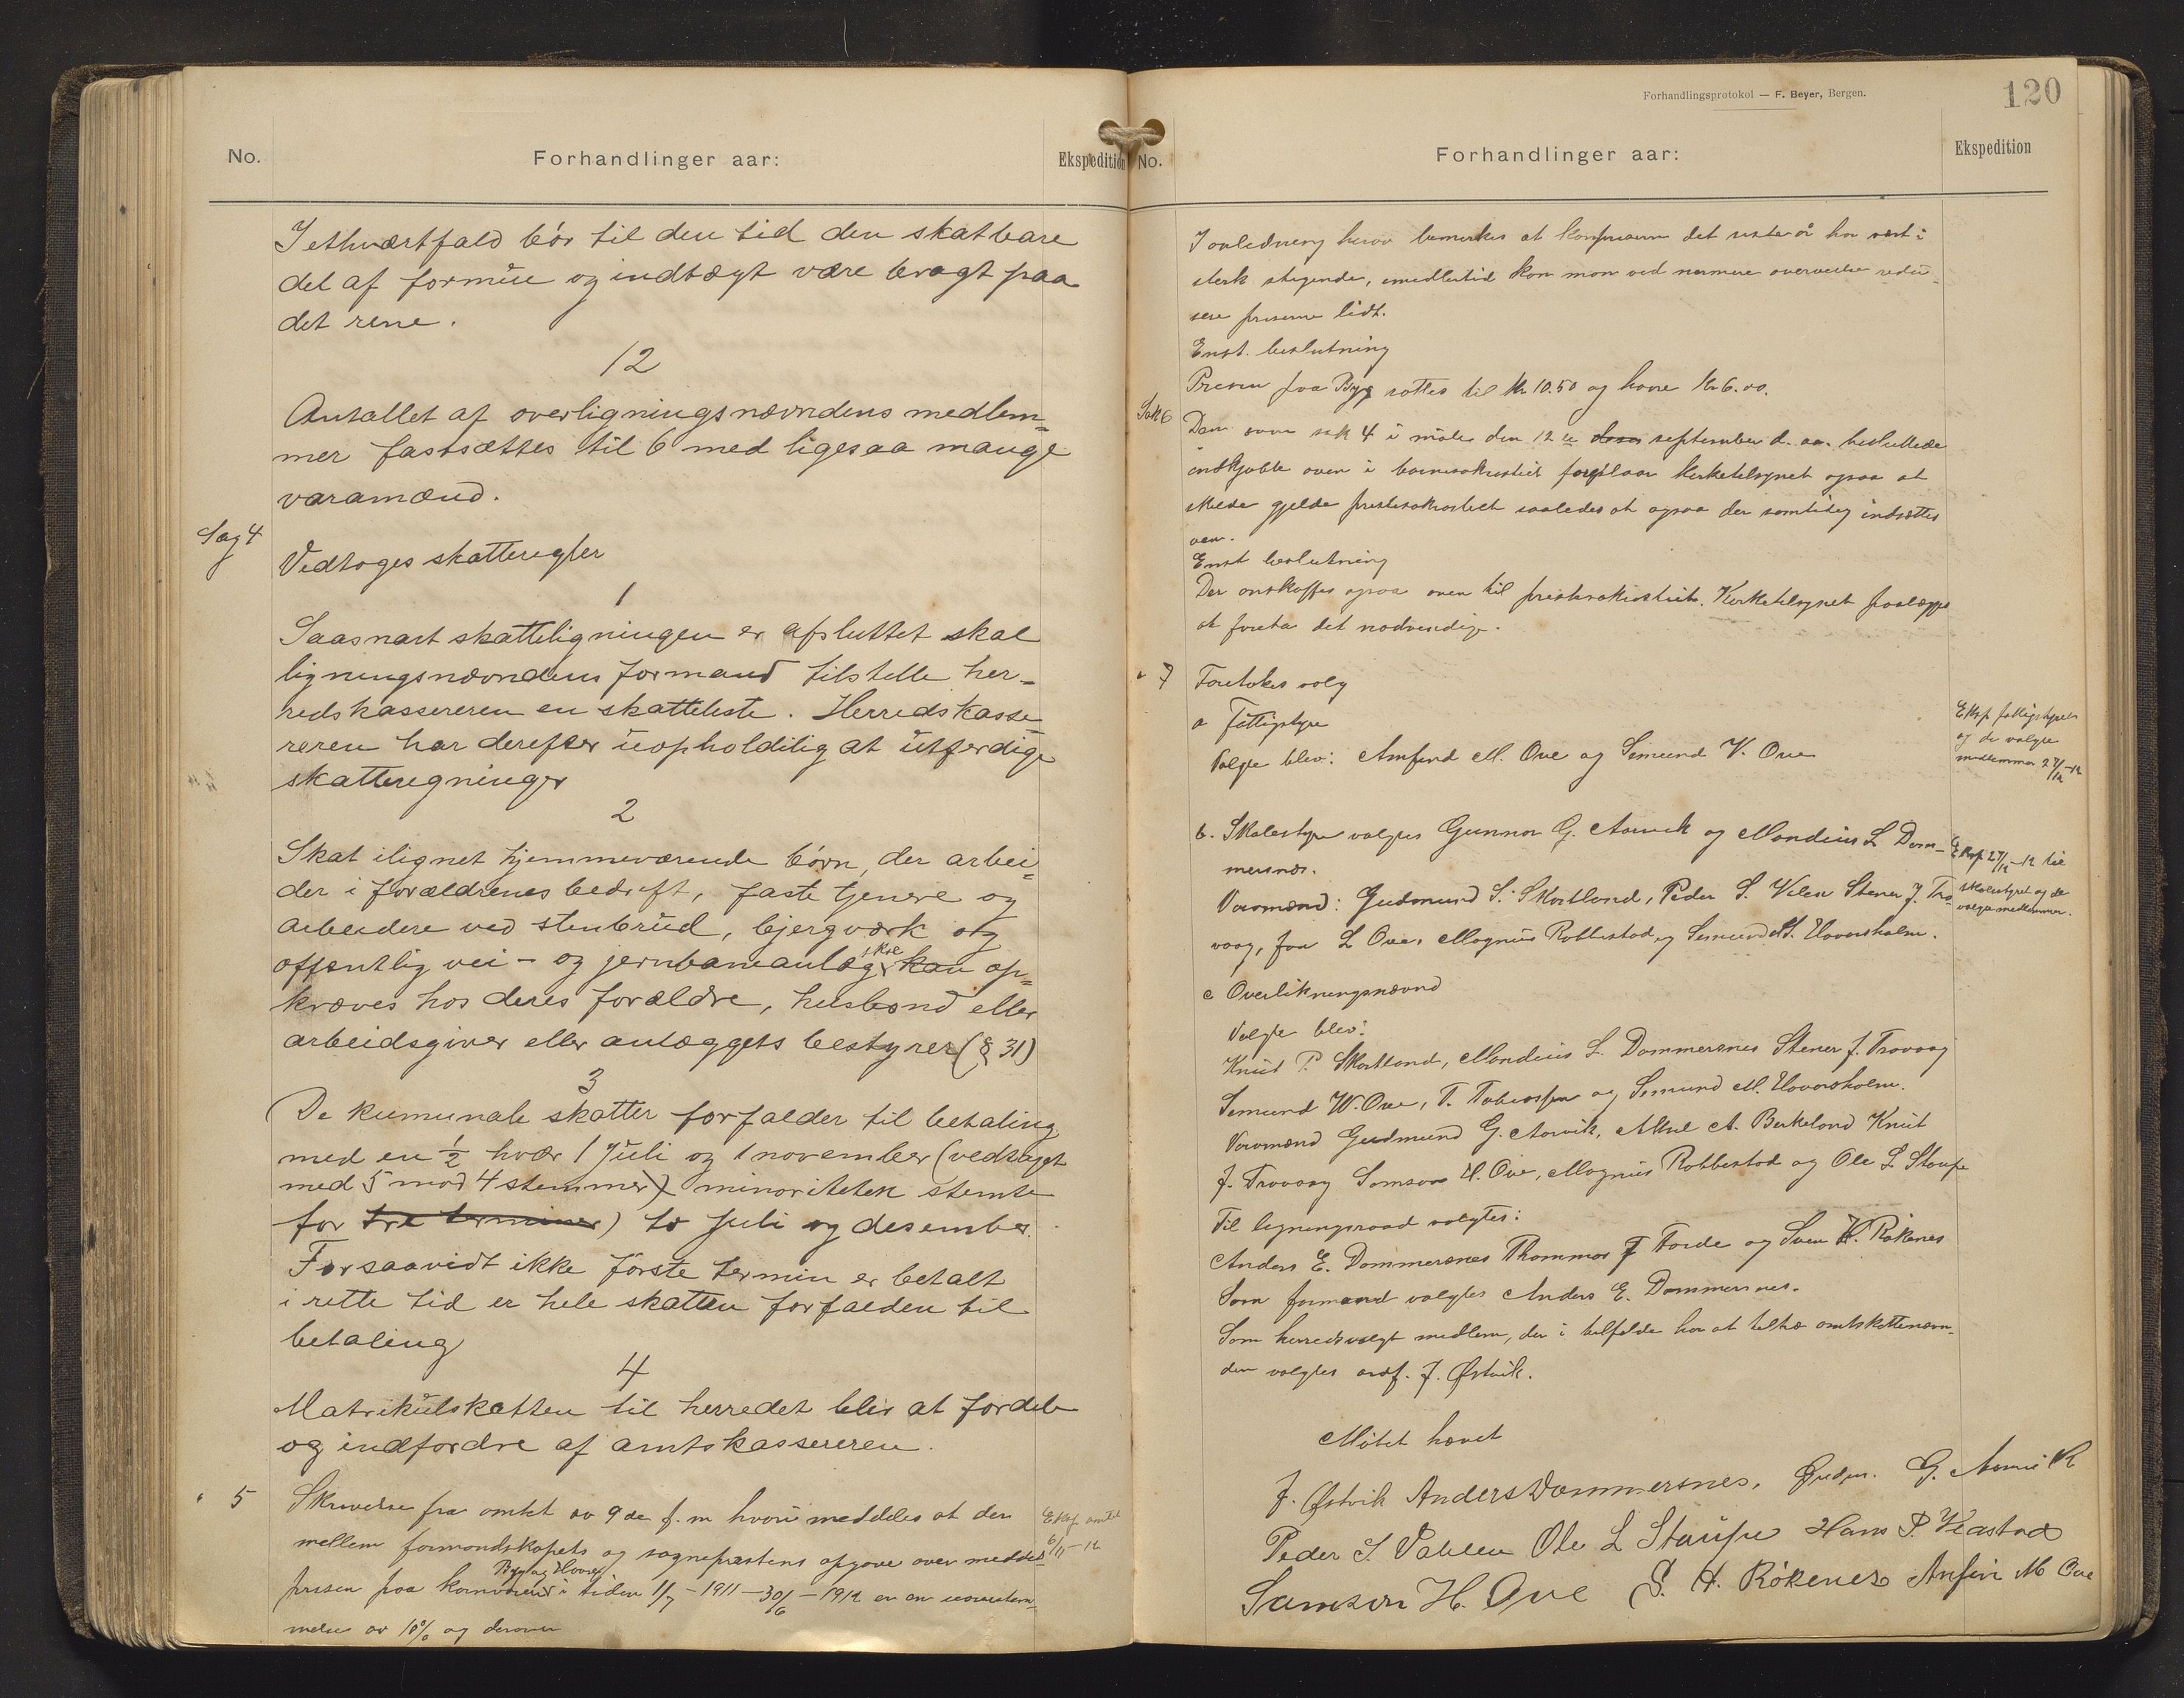 No.
Forhandlinger aar:
Ekspedition
I ethvertfald bør til den tid den skatbare
del af formue og indtægt være bragt paa
det rene.
12
Antallet af overligningsnævndens medlem=
mer fastsættes til 6 med ligesaa mange
varamænd.
Sag 4
Vedtoges skatteregler
1
Saasnart skatteligningen er afsluttet skal
ligningsnævndens formand tilstelle her-
redskassereren en skatteliste. Herredskasse
reren har derefter uopholdilig at utferdige
skatteregninger
2
Skat ilignet hjemmeværende børn, der arbei=
der i forældrenes bedrift, faste tjenere og
arbeidere ved stenbrud, bjergværk og
offentlig vei- og jernbaneanlæg skal kan op=
kræves hos deres forældre, husbond eller
arbeidsgiver eller anlæggets bestyrer (§ 31)
3
De kumunale skatter forfalder til betaling
med en 1/2 hvær 1 Juli og 1 november (vedtaget
med 5 mod 4 stemmer) minoriteten stemte
for tre terminer) to Juli og desember.
Forsaavidt ikke første termin er betalt
i rette tid er hele skatten forfalden til
betaling
4
Matrikulskatten til herredet blir at fordele
og indfordre af amtskassereren.
" 5
Skrivelse fra amtet av 9 de f. m hvori meddeles at der
Eksp. amtet
6/11-12
mellem formandskapets og sogneprestens opgave over middel
Byg og Havre
prisen paa kornvarer i tiden 1/7-1911-30/6-1912 er en uoverstem
melse av 10% og derover
Forhandlingsprotokol — F. Beyer, Bergen.
120
No.
Forhandlinger aar:
Ekspedition
I anledning herav bemerkes at kornpriserne det siste år har vært i
sterk stigende, imedlertid kan man ved nærmere overveielse redu
sere priserne lidt.
Enst. beslutning
Prisen paa Byg sættes til kr 10.50 og havre kr 6.00.
Sak 6
Den over sak 4 i møte den 12 te september d. aa. besluttede
indkjøbte oven i barnesakristiet foreslaar kirketilsynet ogsaa at
skulde gjelde prestesakristiet saaledes at ogsaa der samtidig indsættes
oven.
Enst beslutning
Der anskaffes ogsaa oven til prestesakristiet. Kirketilsynet paalægges
at foreta det nødvendige.
" 7
Foretokes valg
a Fattigstyre
Valgte blev: Amfind M. Ove og Simund V. Ove
Eksp. fattigstyret
og de valgte
medlemmer 27/12-12
b. Skolestyre valgtes Gunnar G. Aarvik og Mandius L Dom-
mersnes.
Eksp. 27/12-12 til
skolestyret og de
valgte medlemmer.
Varamænd: Gudmund S. Skortland, Peder S. Velen Stener J. Tro
vaag, Jon L Ove, Magnus Robbestad og Simund M. Hoversholm.
c Overlikningsnævnd
Valgte blev:
Knut P. Skortland, Mandius L. Dommersnes Stener J. Trovaag
Simund W. Ove, T. Tobiassen og Simund M. Hoversholm.
Varamænd Gudmund G. Aarvik, A. Berkeland Knut
J. Trovaag Samson H. Ove, Magnus Robbestad og Ole L. Staupe
Til ligningsraad valgtes:
Anders E. Dommersnes Thommas J Førde og Sven H. Røkenes
Som formand valgtes Anders E. Dommersnes.
Som herredsvalgt medlem, der i tilfelde har at tiltræ amtskattenævn-
den valgtes ordf. J. Østvik.
Møtet hævet
J. Østvik Anders Dommersnes, Gudm. G. Aarvik
Peder S. Ole L Staupe Hans P. Viastad
Samson H. Ove S. H. Røkenes Anfin M Ove